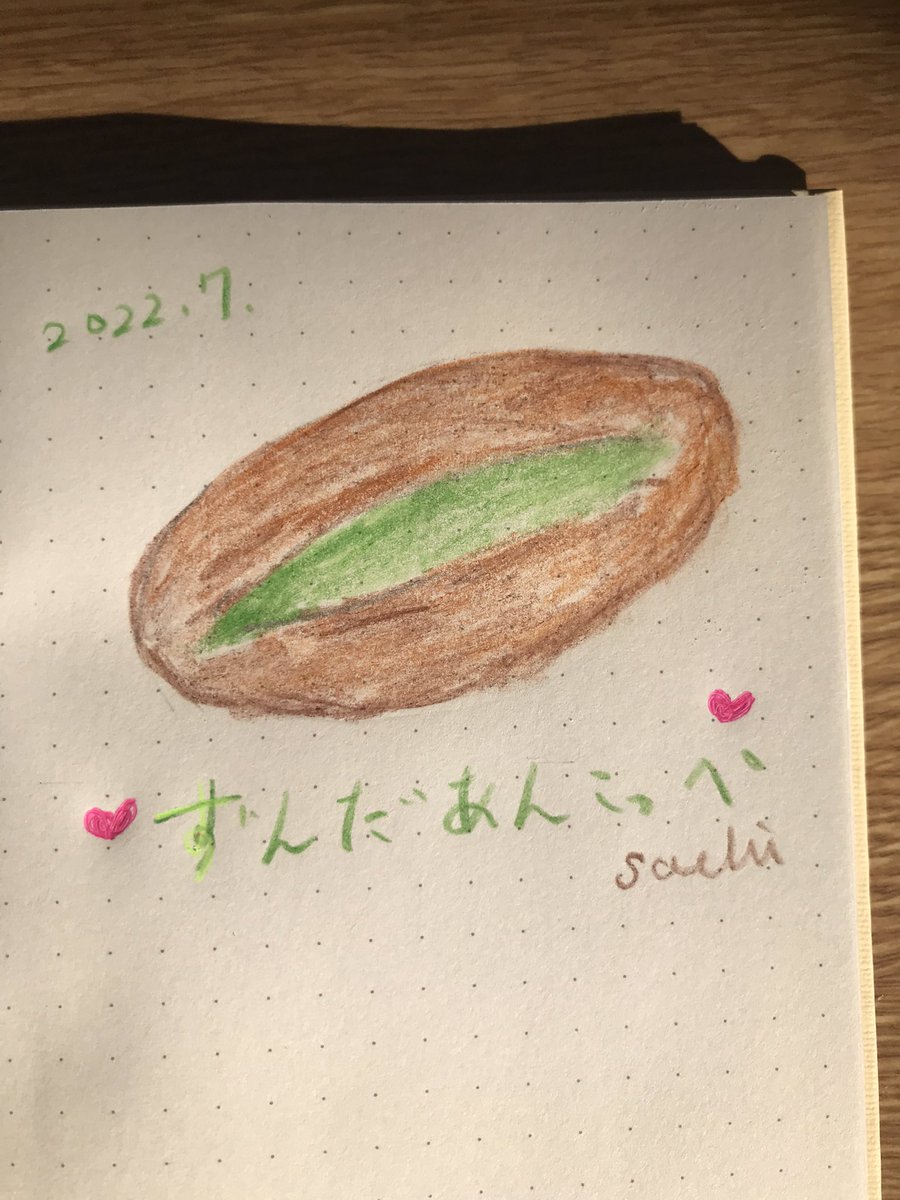 2022.7.
ずんだあんこっぺ
sachi